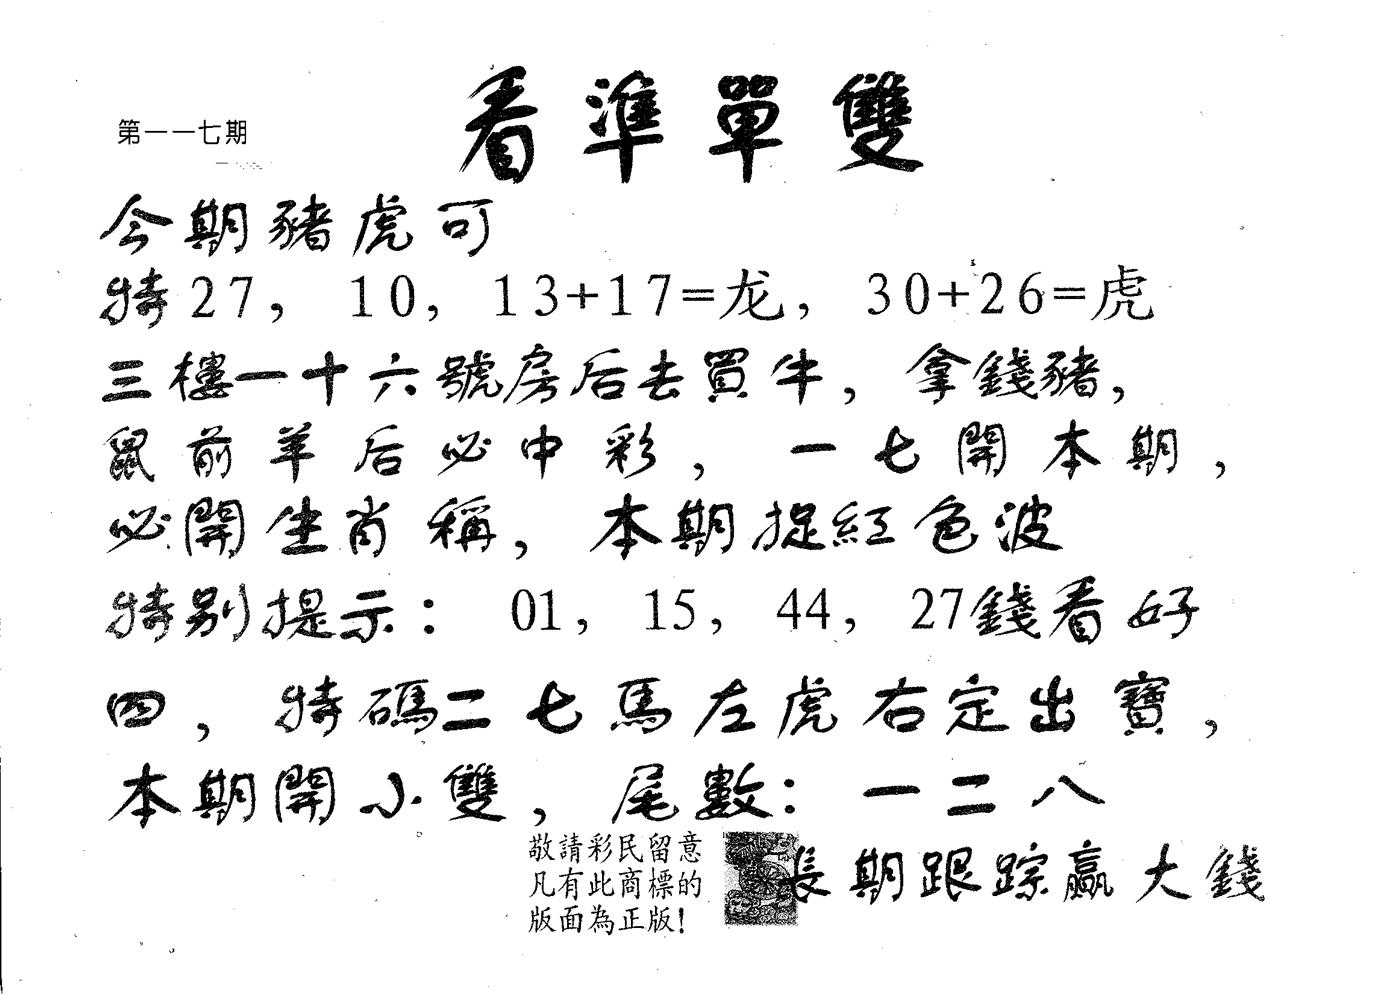 看準單雙
第一一七期
今期豬虎可
特27，10，13+17=龙，30+26=虎
三樓一十六號房后去買牛，拿錢豬，
鼠前羊后必中彩，一七開本期，
必開生肖稱，本期捉紅色波
特别提示：01，15，44，27錢看好
四，特碼二七馬左虎右定出寶，
本期開小雙，尾數：一二八
敬請彩民留意
凡有此商標的
版面為正版！
長期跟踪赢大錢